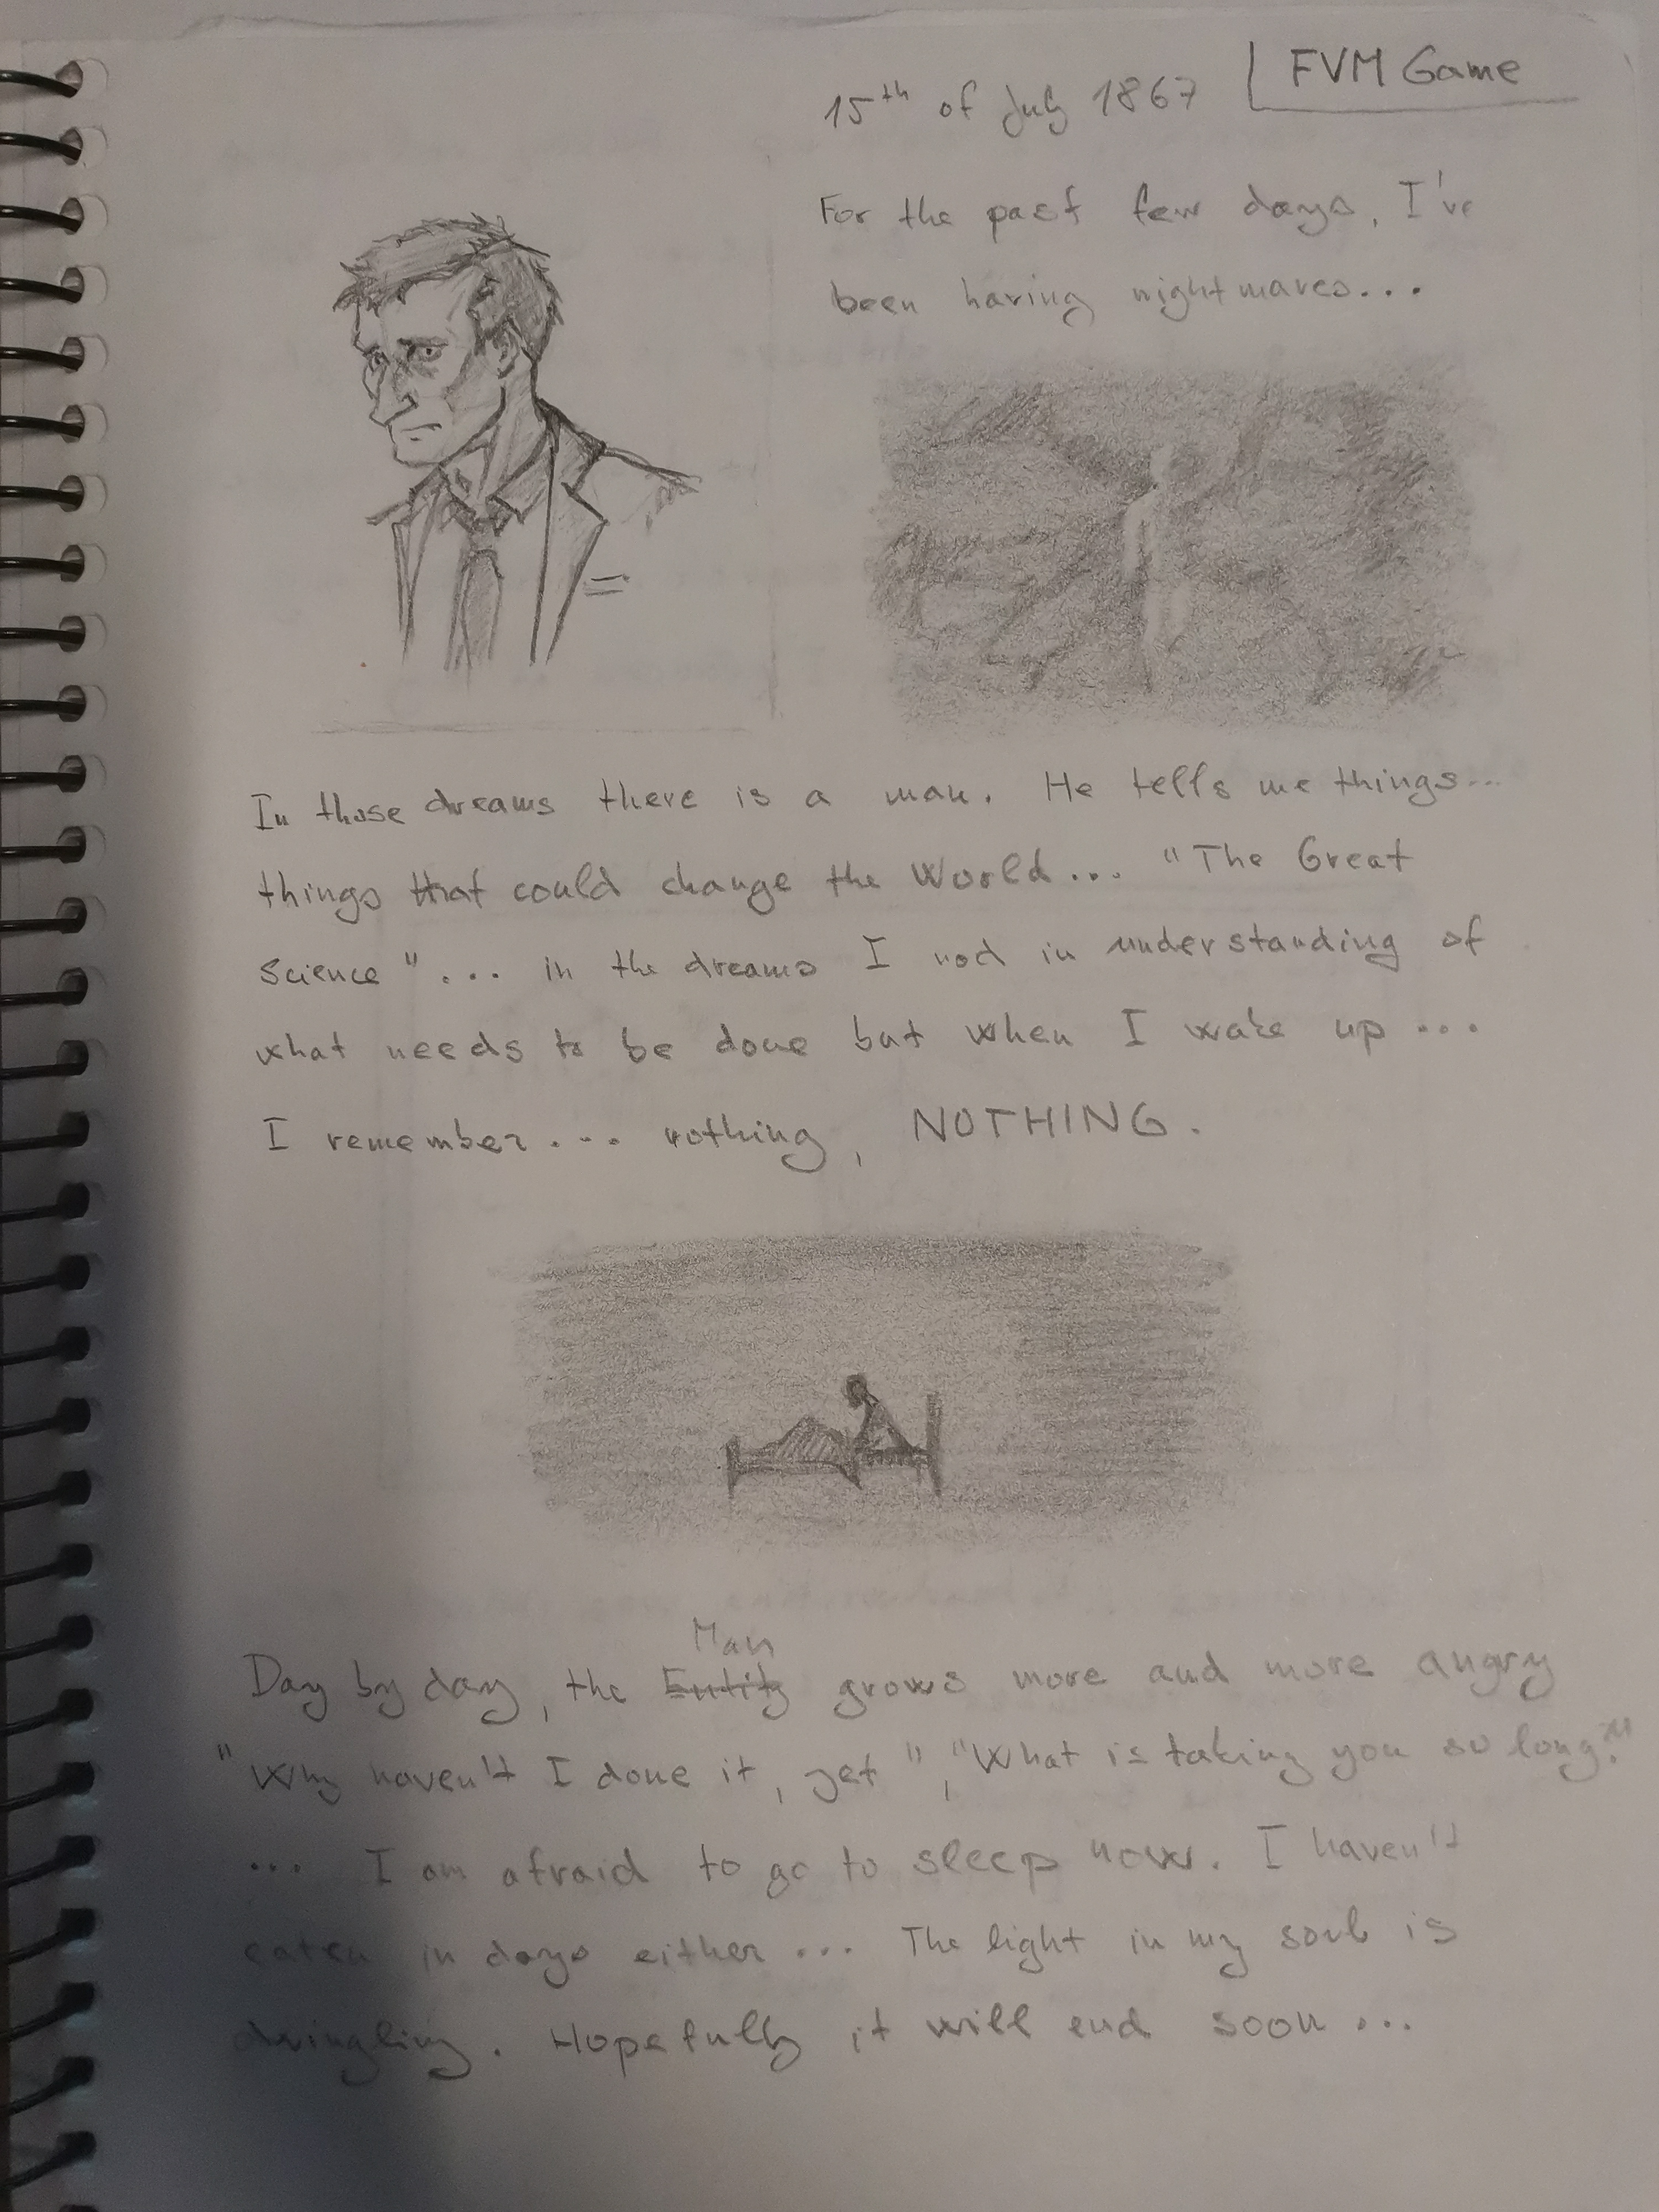 FVM Game
15th of July 1867
For the past few days, I've
been having nightmares...
In those dreams there is a man. He tells me things...
things that could change the World... "The Great
Science"... in the dreams I nod in understanding of
what needs to be done but when I wake up...
I remember.... nothing, NOTHING.
Man
Day by day, the Entity grows more and more angry
"Why haven't I done it, yet", "What is taking you so long?"
... I am afraid to go to sleep now. I haven't
eaten in days either... The light in my soul is
dwingling. Hopefully it will end soon...